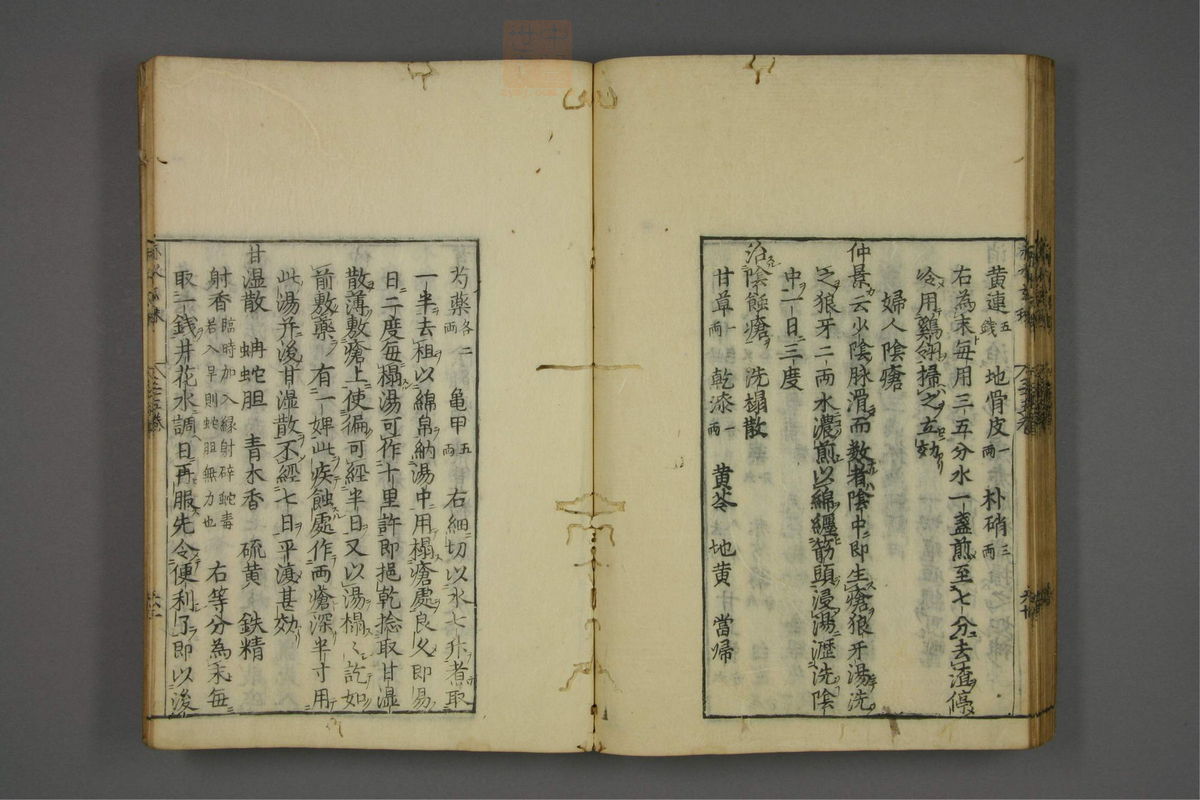 黄連五錢 地骨皮一兩 朴硝三兩
右為末毎用三五分水一盞煎至七分去渣停
冷用鷄翎掃之立効
婦人陰瘡
仲景云少陰脉滑而数者陰中即生瘡狼牙湯洗
之狼牙二両水濃煎以綿纏筯頭浸湯瀝洗陰
中一日三度
治陰蝕瘡 洗榻散
甘草一両 乾漆一両 黄芩 地黄 當帰
芍藥各二両 亀甲五両 右細切以水七升煮取
一半去租以綿帛納湯中用榻瘡處良久即易
日二度毎榻湯可作十里許即挹乾捻取甘湿
散薄敷瘡上使徧可經半日又以湯榻〻訖如
前敷藥 有一婢此疾蝕處作両瘡深半寸用
此湯并後甘湿散不經七日平復甚効
甘湿散 蚺蛇胆 青木香 硫黄 鉄精
射香臨時加入縁射碎蛇毒若入早則蛇胆無力也 右等分為末毎
取一錢井花水調日再服先令便利了即以後